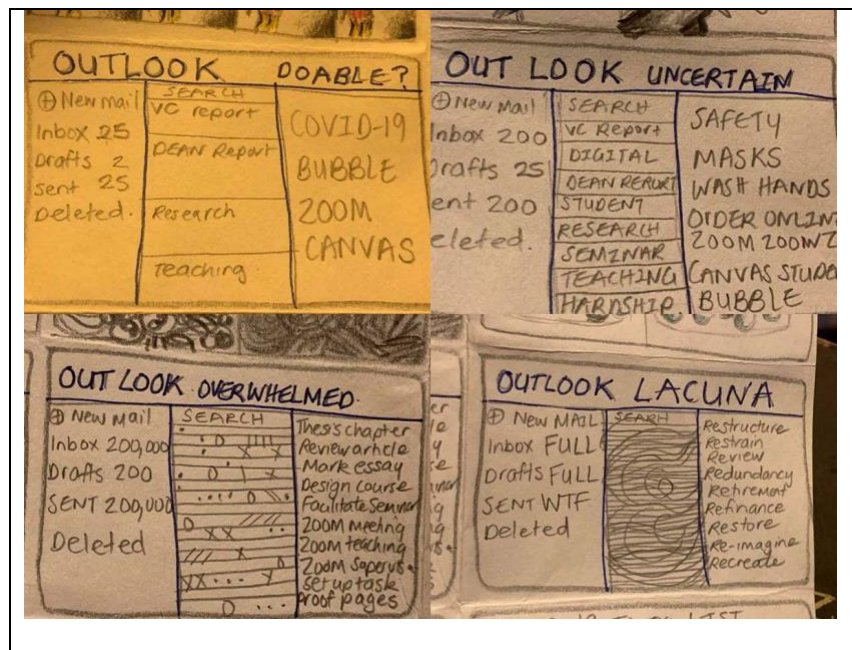 OUTLOOK DOABLE?
⊕ New mail
Inbox 25
Drafts 2
Sent 25
Deleted.
SEARCH
VC report
DEAN Report
Research
Teaching
COVID-19
BUBBLE
ZOOM
CANVAS
OUT LOOK UNCERTAIN
⊕ New mail
Inbox 200
Drafts 25
ent 200
eleted.
SEARCH
VC Report
DIGITAL
DEAN REPORT
STUDENT
RESEARCH
SEMINAR
TEACHING
HARDSHIP
SAFETY
MASKS
WASH HANDS
ORDER ONLIN
ZOOM ZOOM
CANVAS STUDE
BUBBLE
OUT LOOK OVERWHELMED.
⊕ New mail
Inbox 200,000
Drafts 200
SENT 200,000
Deleted
SEARCH
Thesis chapter
Review article
Mark essay
Design course
Facilitate Seminar
ZOOM meeting
ZOOM teaching
ZOOM Supervis
set up task
Proof pages
OUTLOOK LACUNA
⊕ New MAIL
Inbox FULL
Drafts FULL
SENT WTF
Deleted
SEARH
Restructure
Restrain
Review
Redundancy
Retirement
Refinance
Restore
Re-imagine
Recreate
LIST